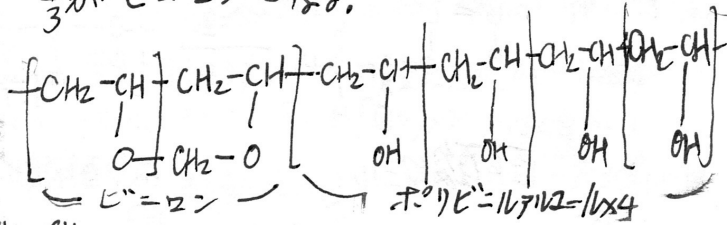 3 が ビニロン になる。
[CH2-CH] CH2-CH [CH2-CH CH2-CH CH2-CH [CH2-CH
O CH2-O OH OH OH OH
ビニロン ポリビニルアルコール×4